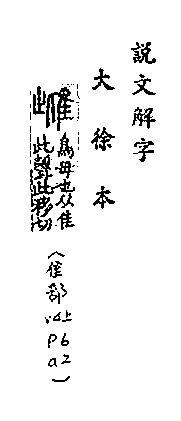 説文解字
大徐本
雌 鳥母也从隹
此聲此移切
(隹部 四上 P6 a2)